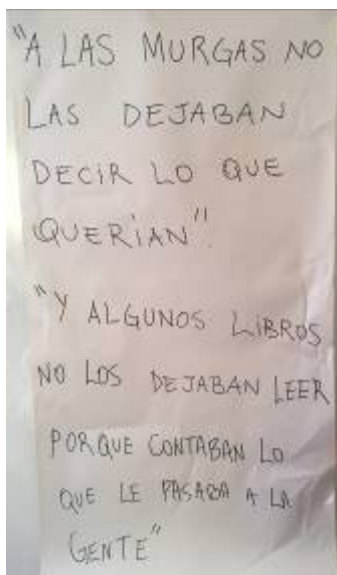 "A LAS MURGAS NO
LAS DEJABAN
DECIR LO QUE
QUERÍAN".
"Y ALGUNOS LIBROS
NO LOS DEJABAN LEER
PORQUE CONTABAN LO
QUE LE PASABA A LA
GENTE"